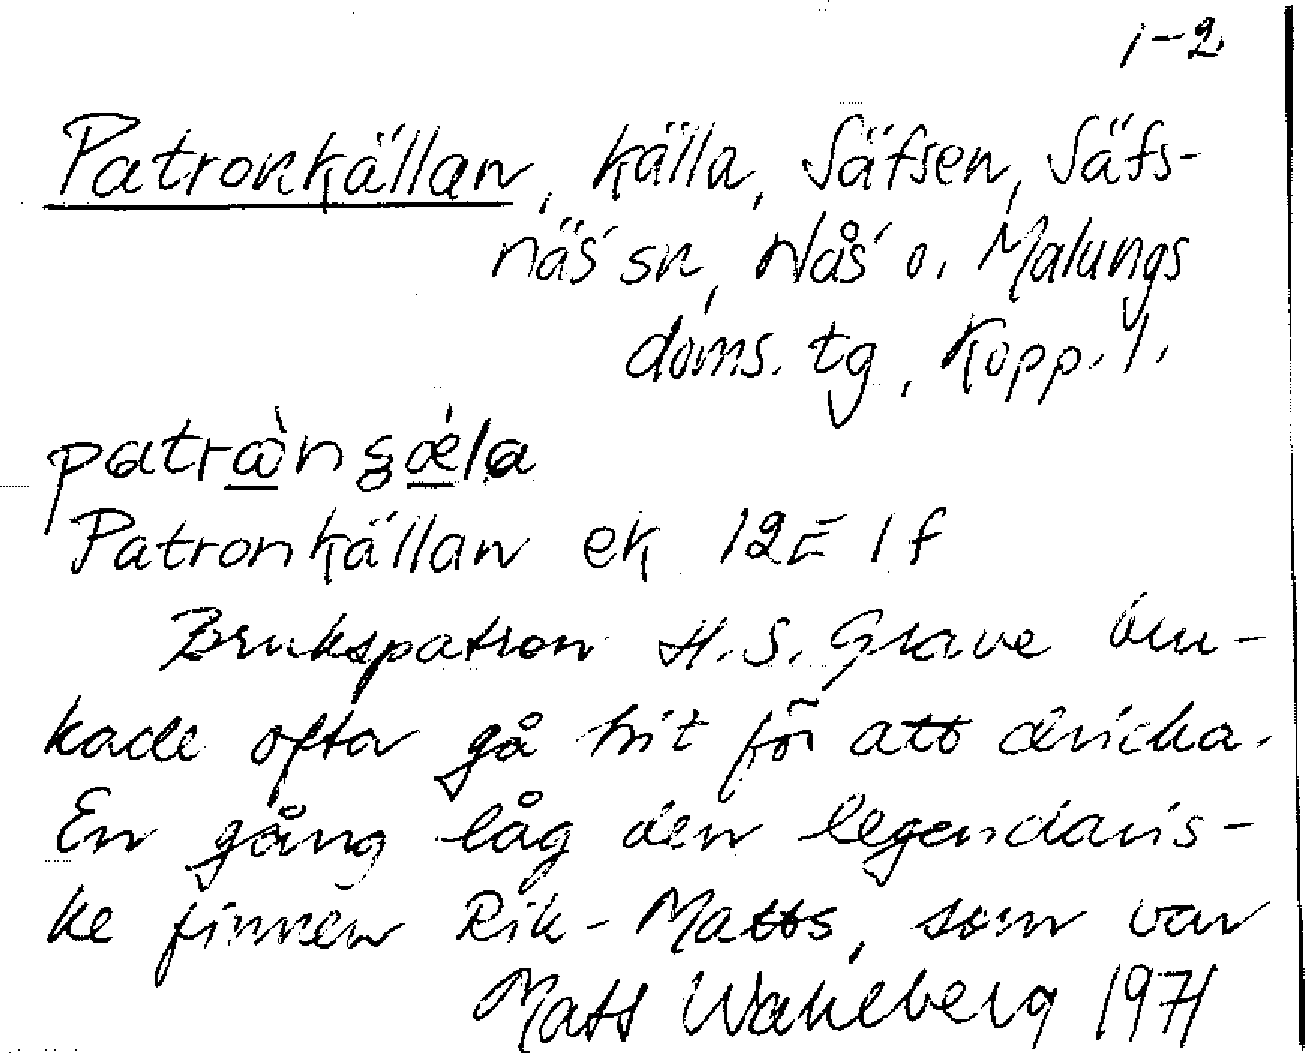 1-2
Patronkällan, källa, Säfsen, Säfs-
näs sn, Nås o. Malungs
doms. tg, Kopp. l.
Patronkällan ek 12E 1f
Brukspatron H.S. Grave bru-
kade ofta gå hit för att dricka.
En gång låg den legendaris-
ke finnen Rik-Matts, som var
Mats Wahlberg 1971